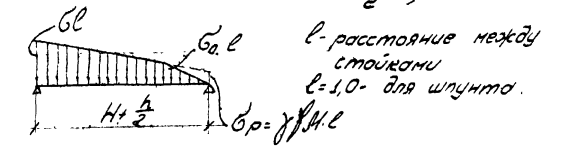 σl
σa. l
l - расстояние между
стойками
l = 1,0 - для шпунта.
H + h/2
σp = γ H. l